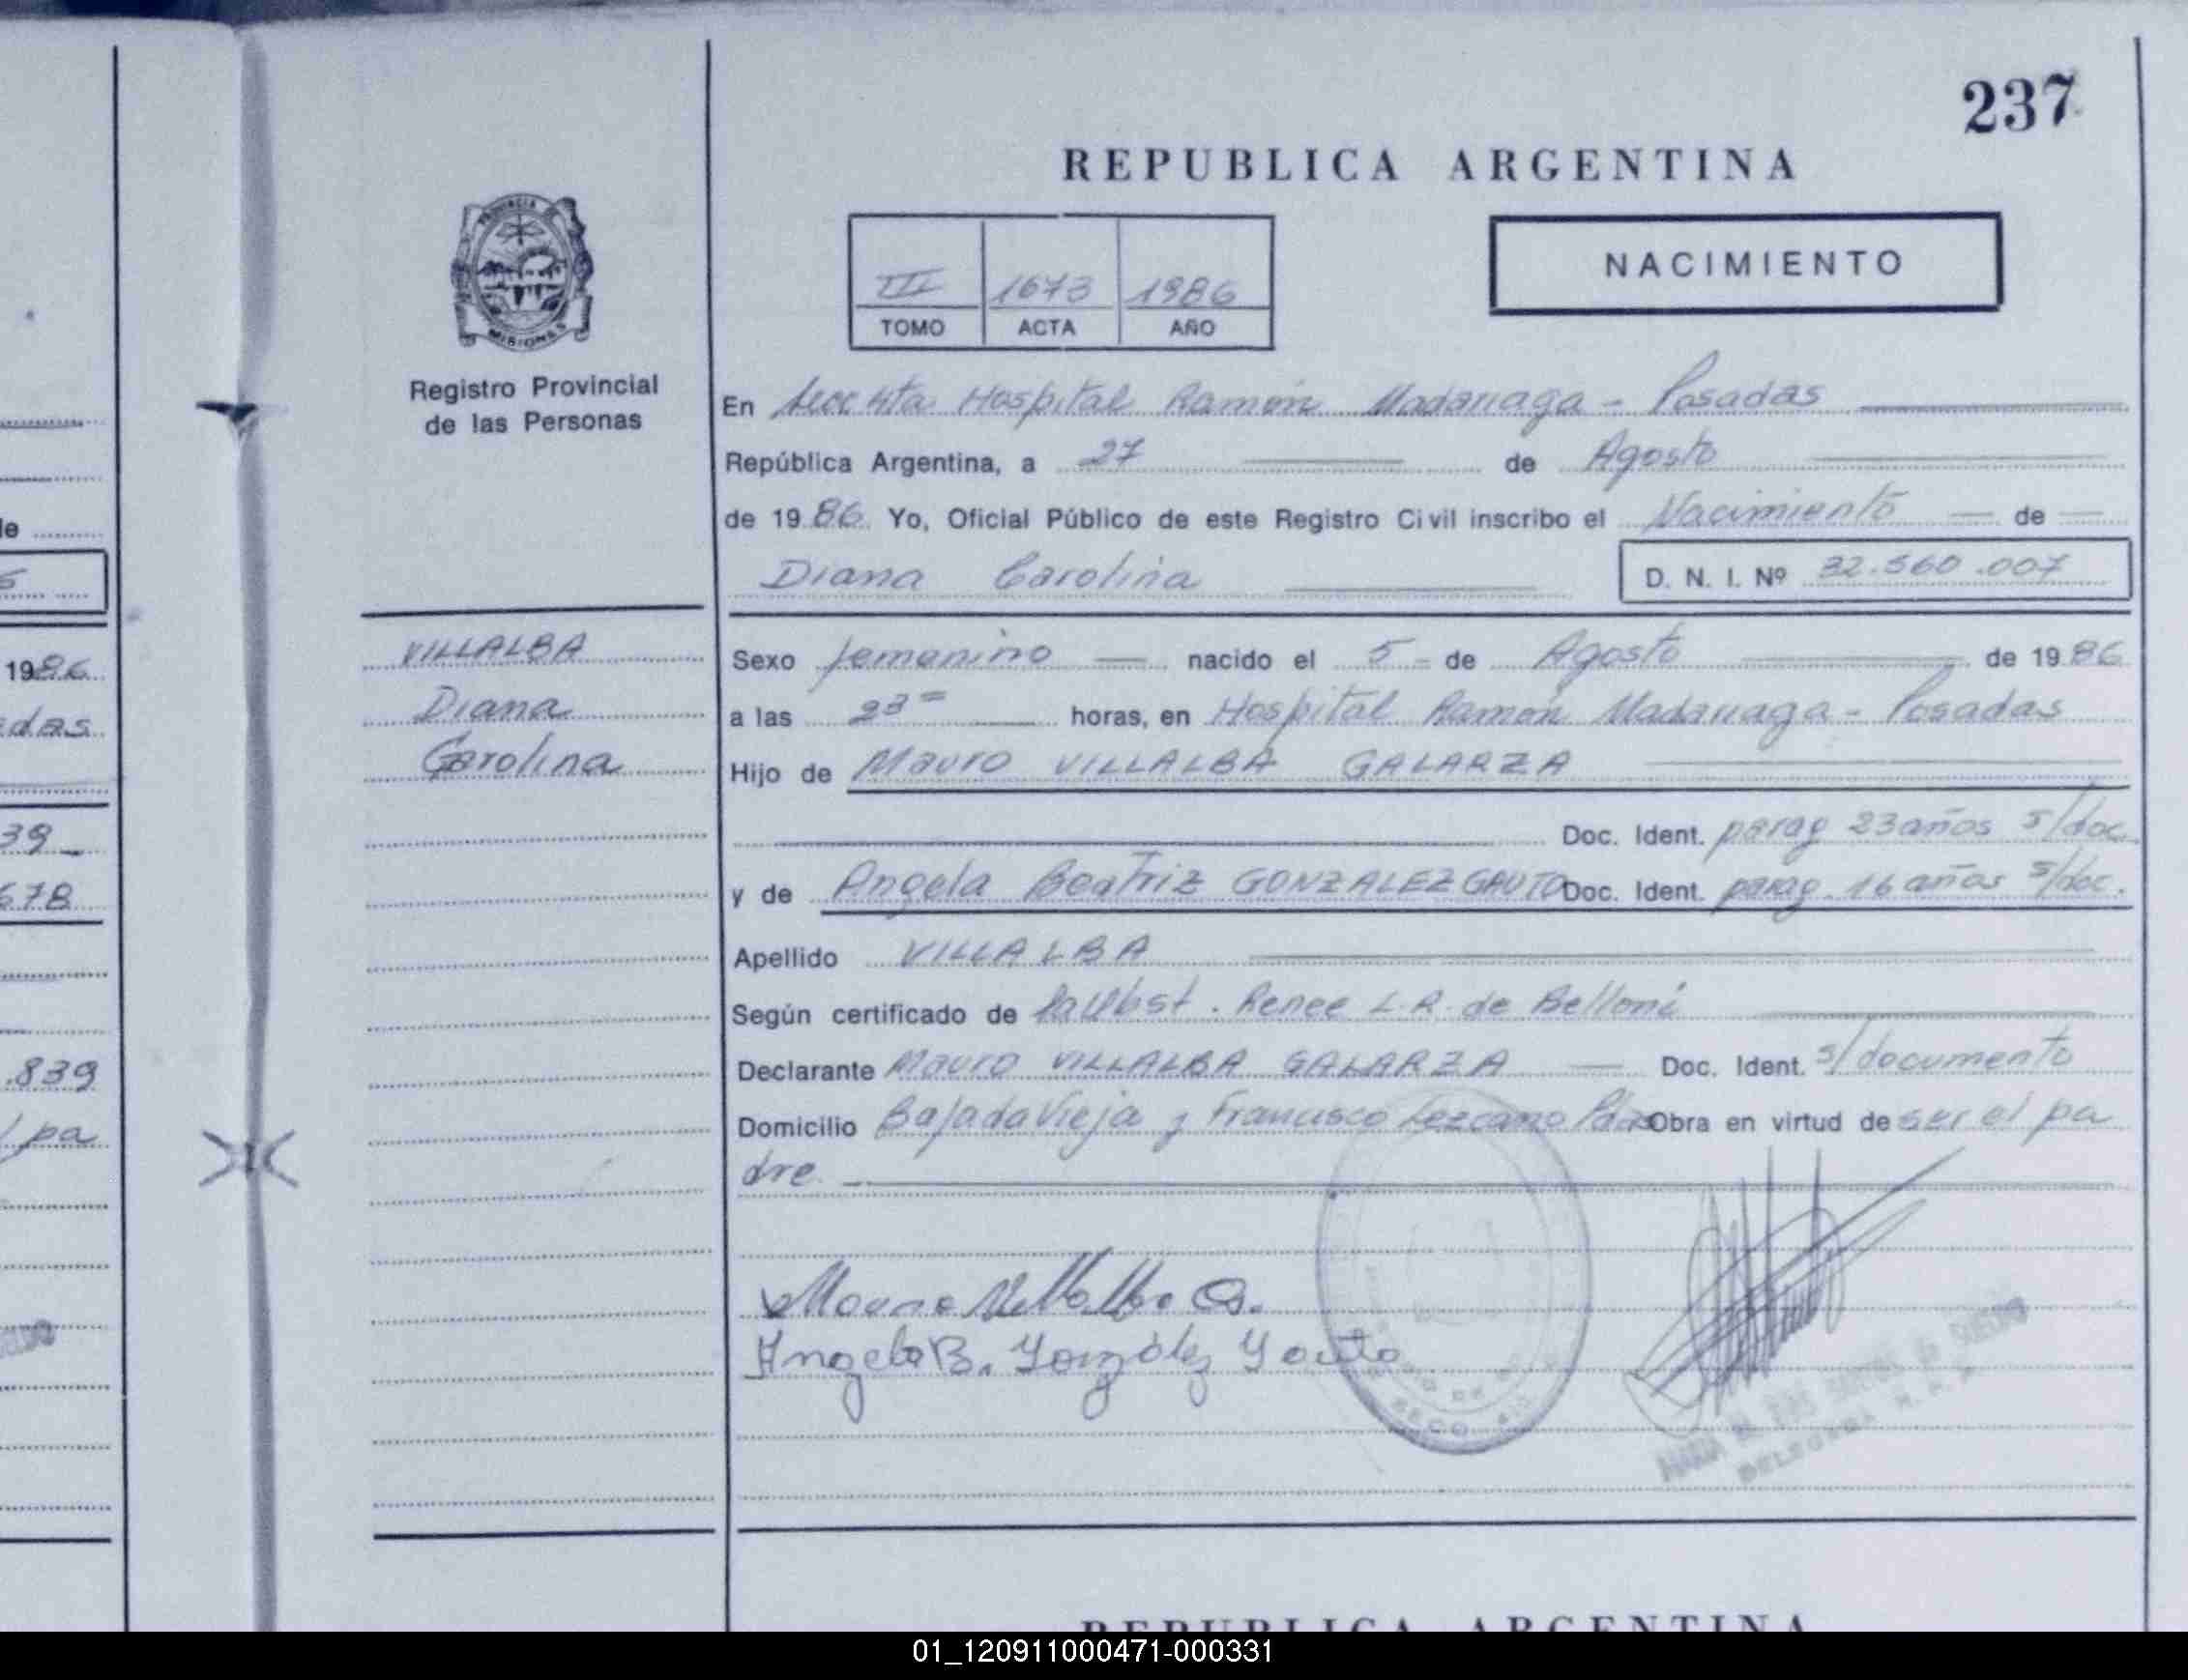 237
REPUBLICA ARGENTINA
NACIMIENTO
III 1673 1986
TOMO ACTA AÑO
PROVINCIA DE
MISIONES
Registro Provincial
de las Personas
En Secc 4ta Hospital Ramón Madariaga - Posadas
República Argentina, a 27 de Agosto
de 1986. Yo, Oficial Público de este Registro Civil inscribo el Nacimiento de
Diana Carolina
D. N. I. Nº 32.560.007
VILLALBA
Diana
Carolina
Sexo femenino nacido el 5 de Agosto de 1986
a las 23 horas, en Hospital Ramón Madariaga - Posadas
Hijo de Mauro VILLALBA GALARZA
Doc. Ident. parag 23 años s/doc.
y de Angela Beatriz GONZALEZ GAUTO Doc. Ident. parag. 16 años s/doc.
Apellido VILLALBA
Según certificado de Renee L.R. de Belloni
Declarante Mauro VILLALBA GALARZA Doc. Ident. s/documento
Domicilio Bajada Vieja y Francisco Lezcano Pdas Obra en virtud de ser el pa
dre.
Mauro Villalba G.
Angela B. González Gauto
le
5
1986
adas
39
678
.839
/ pa
REPUBLICA ARGENTINA
01_120911000471-000331